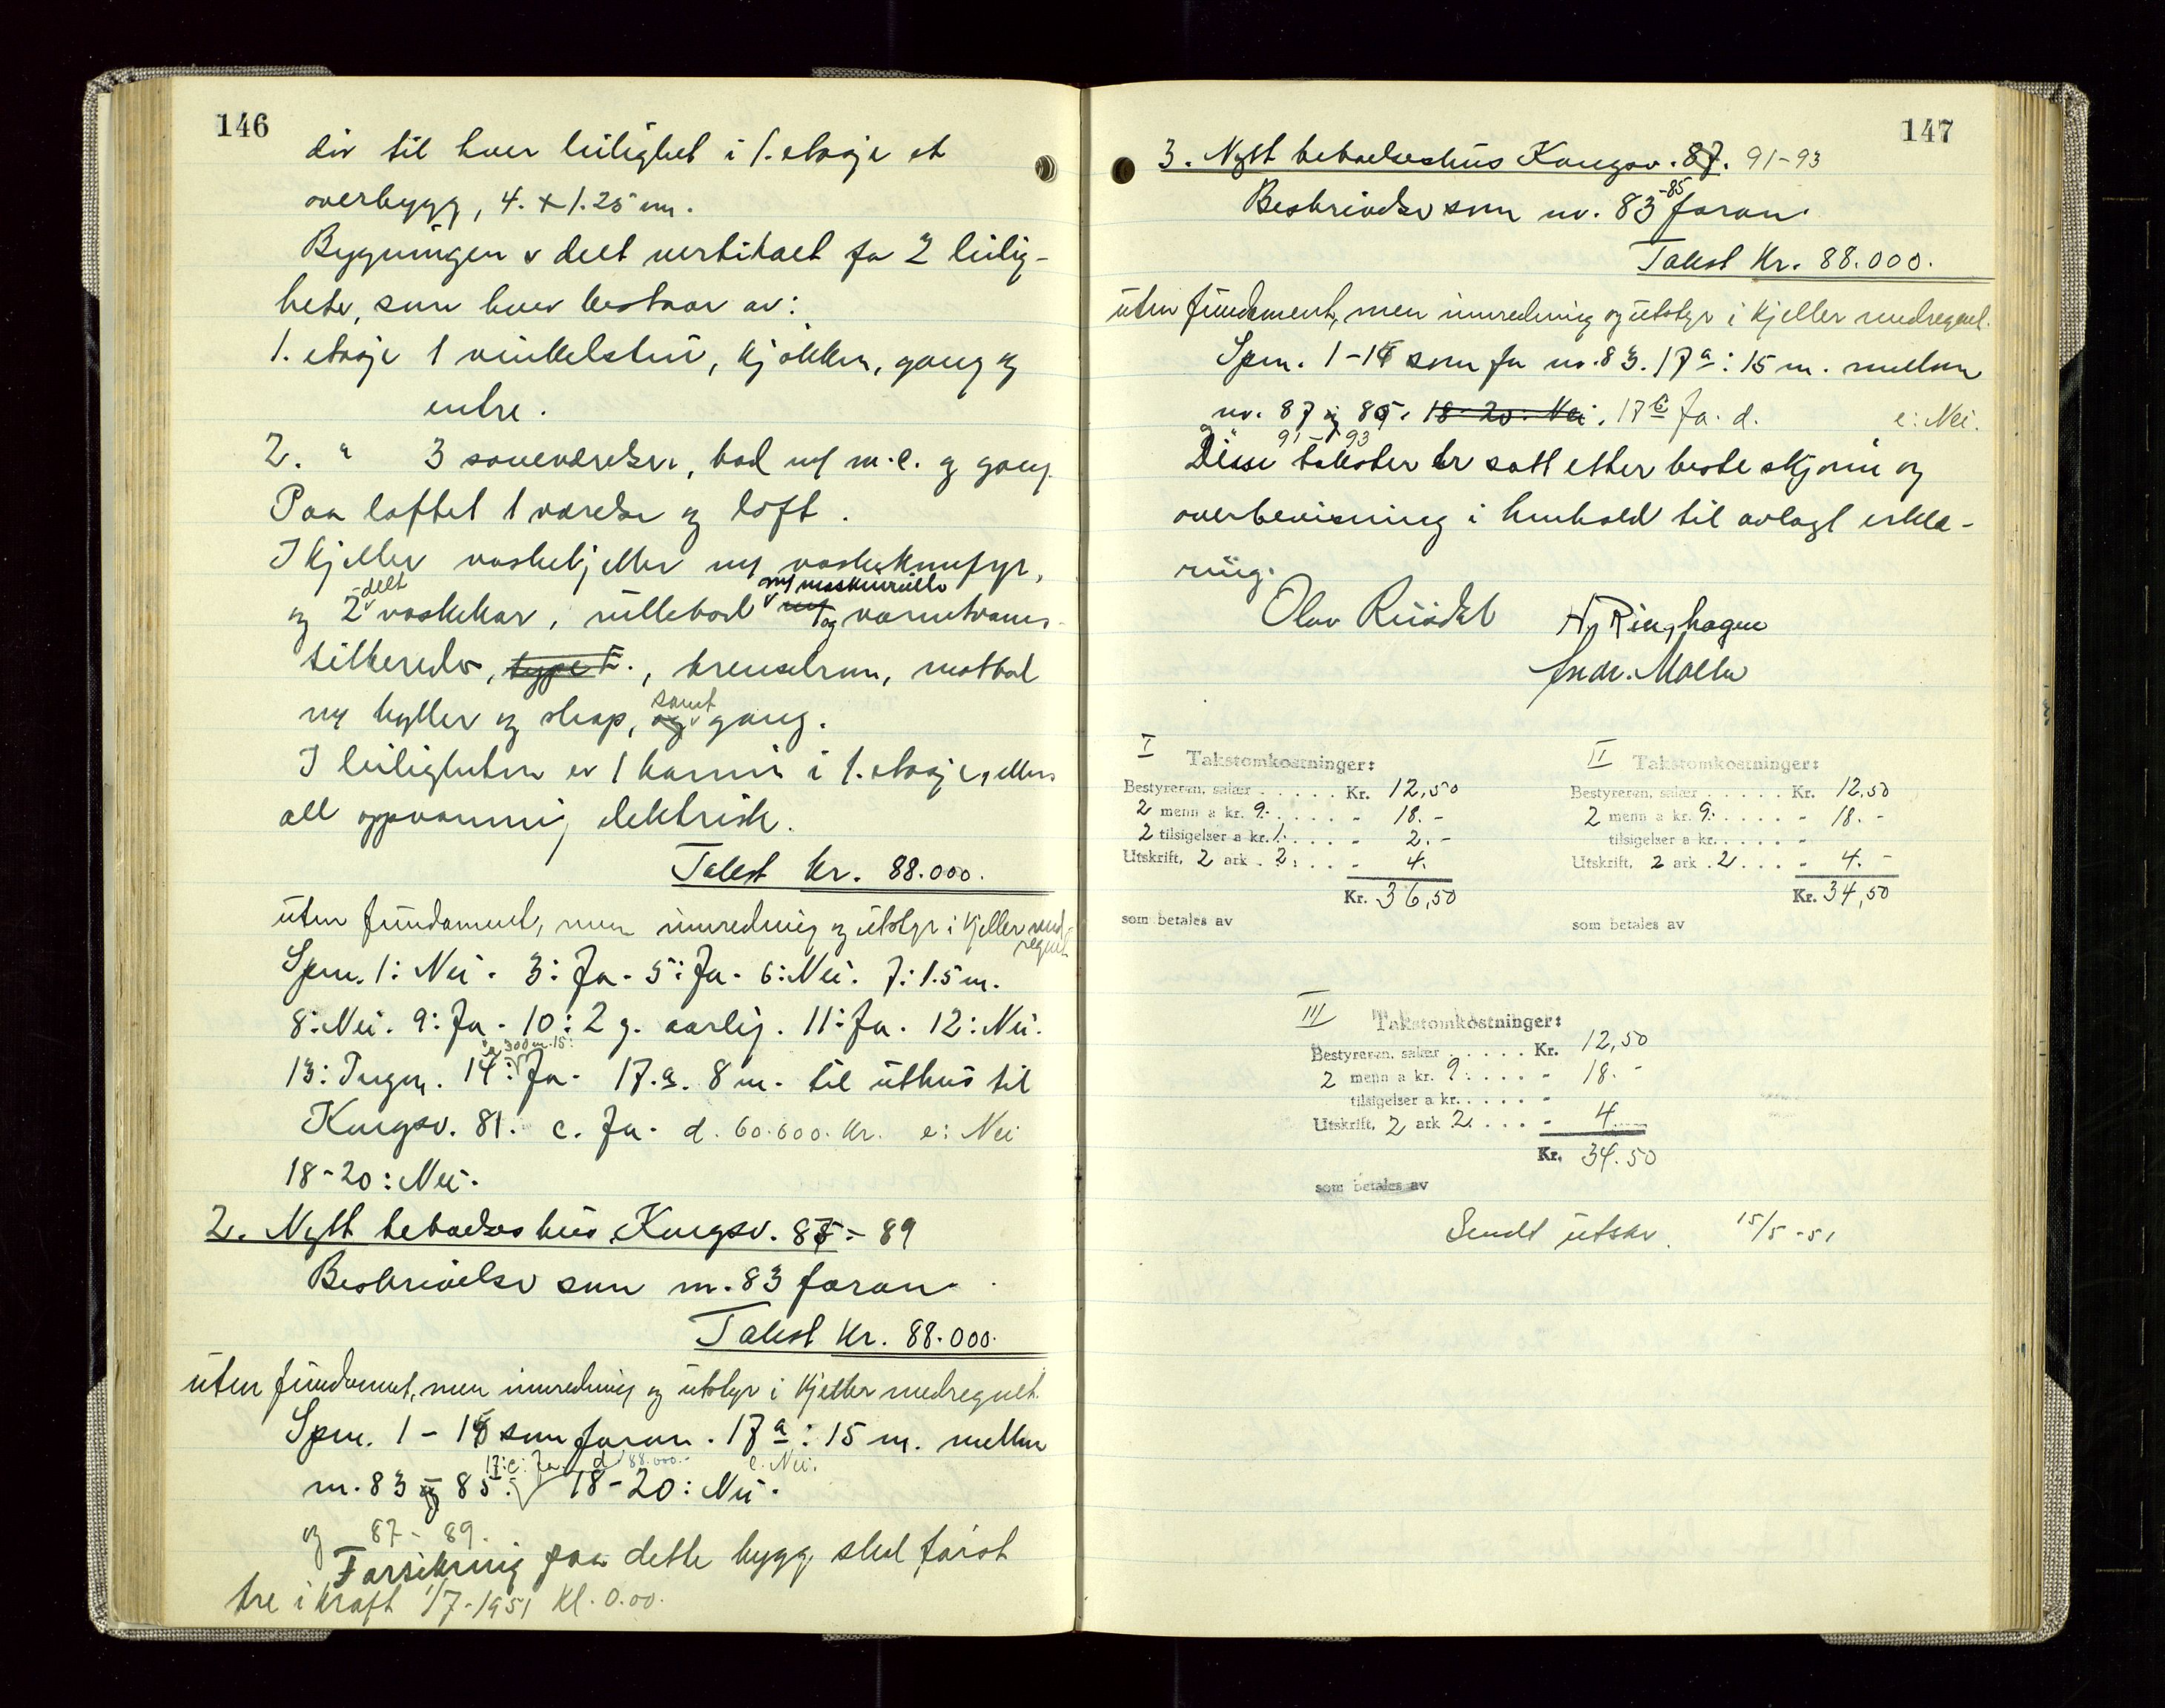 146
dør til hver leilighet i 1. etasje et
overbygg, 4. + 1.25 m.
Bygningen er delt vertikalt for 2 leilig-
heter, som hver bestaar av:
1. etasje 1 vinkelstue, kjøkken, gang og
entre.
2. " 3 soveværelser, bad m/ w.c. og gang.
Paa loftet 1 værelse og loft.
I kjeller vaskekjeller m/ vaskekumfyr,
-delt m/ maskinrulle
og 2 vaskekar, rullebod og varmtvanns-
tilbereder, type E., brenselrum, matbod
samt
m/ hyller og skap, og gang.
I leiligheten er 1 kamin i 1. etasje, ellers
all oppvarming elektrisk.
Takst kr. 88.000.
uten fundament, men innredning og utstyr i kjeller med-
regnet
Spm. 1: Nei. 3: Ja. 5: Ja. 6: Nei. 7: 1.5 m.
8: Nei. 9: Ja. 10: 2 g. aarlig. 11: Ja. 12: Nei.
300 m. 15:
13: Ingen. 14: Ja. 17.a. 8 m. til uthus til
Kongsv. 81. c. Ja. d. 60.600. kr. e: Nei
18-20: Nei.
2. Nytt beboelseshus Kongsv. 85 - 89
Beskrivelse som nr. 83 foran.
Takst kr. 88.000.
uten fundament, men innredning og utstyr i kjeller medregnet.
Spm. 1 - 15 som foran. 17 a: 15 m. mellom
17: c: Ja. d 88.000.- e. Nei.
nr. 83 og 85. 18-20: Nei.
og 87 - 89.
Forsikring paa dette bygg skal først
tre i kraft 1/7-1951 kl. 0.00.
147
3. Nytt beboelseshus Kongsv. 87. 91-93
-85
Beskrivelse som nr. 83 foran.
Takst kr. 88.000.
uten fundament, men innredning og utstyr i kjeller medregnet.
Spm. 1-15 som for nr. 83. 17 a: 15 m. mellom
nr. 87 og 89. 18-20: Nei. 17 c Ja. d. e: Nei.
og 91 - 93
Disse takster er satt etter beste skjønn og
overbevisning i henhold til avlagt erklæ-
ring.
Olav Rusdal H. Ringhagen
Andr. Moen
I Takstomkostninger:
Bestyreren, salær ..... Kr. 12,50
2 menn a kr. 9. .... - 18.-
2 tilsigelser a kr. 1. ... - 2.-
Utskrift, 2 ark . 2. ... - 4.
Kr. 36,50
som betales av
II Takstomkostninger:
Bestyreren, salær ..... Kr. 12,50
2 menn a kr. 9. .... - 18.-
tilsigelser a kr. .... -
Utskrift, 2 ark . 2 ... - 4.-
Kr. 34,50
som betales av
III Takstomkostninger:
Bestyreren, salær ..... Kr. 12,50
2 menn a kr. 9. .... - 18.-
tilsigelser a kr. .... -
Utskrift, 2 ark 2. ... - 4
Kr. 34.50
som betales av
Sendt utskr. 15/5-51